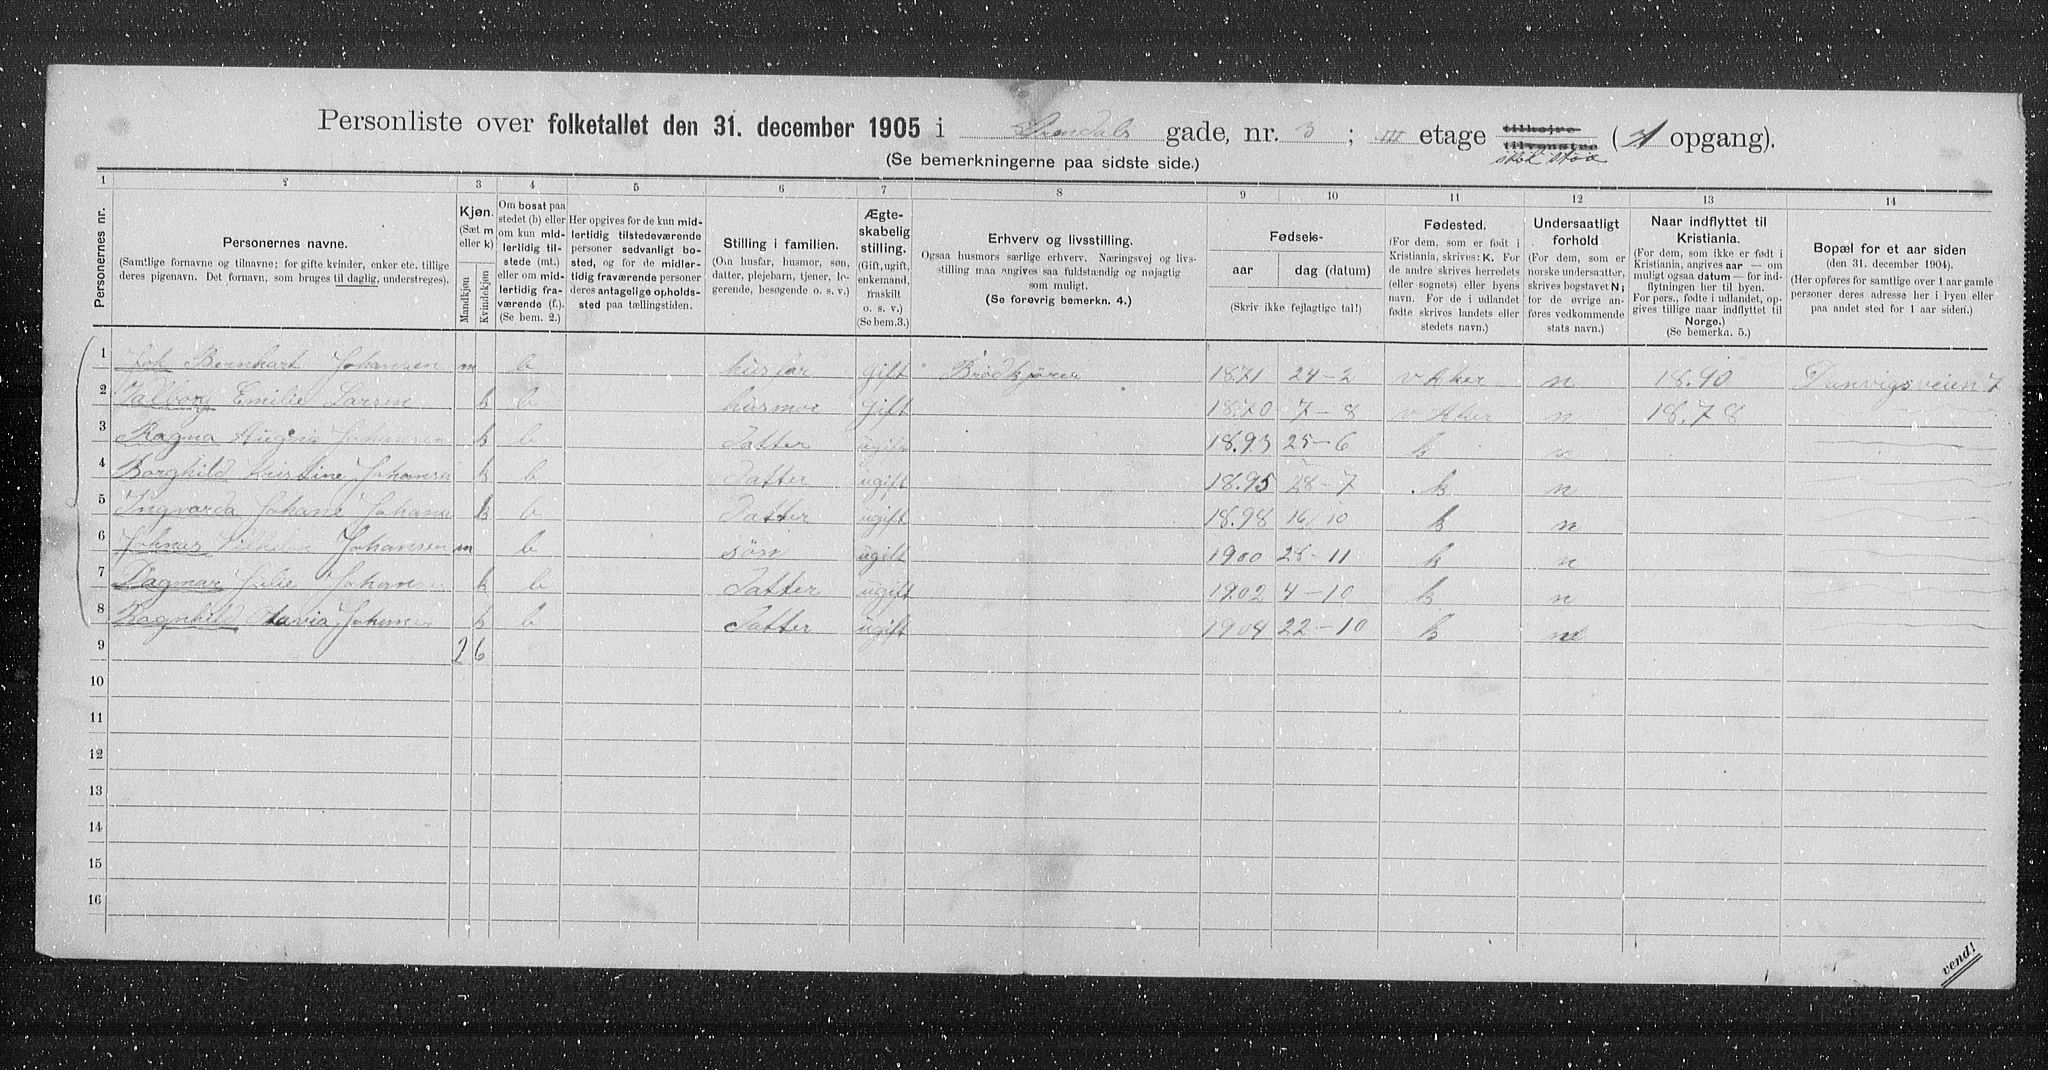 Personliste over folketallet den 31. december 1905 i Arendals gade, nr. 3 ; III etage tilhøjre tilvenstre (A opgang).
(Se bemerkningerne paa sidste side.)
1 2 3 4 5 6 7 8 9 10 11 12 13 14
Personernes nr.
Personernes navne.
(Samtlige fornavne og tilnavne; for gifte kvinder, enker etc. tillige
deres pigenavn. Det fornavn, som bruges til daglig, understreges).
Kjøn.
(Sæt m
eller k)
Mandkjøn
Kvindekjøn
Om bosat paa
stedet (b) eller
om kun mid-
lertidig til-
stede (mt.)
eller om mid-
lertidig fra-
værende (f.).
(Se bem. 2.)
Her opgives for de kun mid-
lertidig tilstedeværende
personer sedvanligt bo-
sted, og for de midler-
tidig fraværende personer
deres antagelige opholds-
sted paa tællingstiden.
Stilling i familien.
(Om husfar, husmor, søn,
datter, plejebarn, tjener, lo-
gerende, besøgende o. s. v.)
Ægte-
skabelig
stilling.
(Gift, ugift,
enkemand,
fraskilt
o. s. v.)
(Se bem.3.)
Erhverv og livsstilling.
Ogsaa husmors særlige erhverv. Næringsvej og livs-
stilling maa angives saa fuldstændig og nøjagtig
som muligt.
(Se forøvrig bemerkn. 4.)
Fødsels-
aar dag (datum)
(Skriv ikke fejlagtige tal!)
Fødested.
(For dem, som er født i
Kristiania, skrives: K. For
de andre skrives herredets
(eller sognets) eller byens
navn. For de i udlandet
fødte skrives landets eller
stedets navn.)
Undersaatligt
forhold
(For dem, som er
norske undersaatter,
skrives bogstavet N;
for de øvrige an-
føres vedkommende
stats navn.)
Naar indflyttet til
Kristiania.
(For dem, som ikke er født i
Kristiania, angives aar — om
muligt ogsaa datum — for ind-
flytningen her til byen.
For pers., fødte i udlandet, op-
gives tillige naar indflyttet til
Norge.)
(Se bemerkn. 5.)
Bopæl for et aar siden
(den 31. december 1904).
(Her opføres for samtlige over 1 aar gamle
personer deres adresse her i byen eller
paa andet sted for 1 aar siden.)
1 Joh. Bernhart Johansen m b husfar gift Brödkjører 1871 24-2 v Aker n 1890 Danvigsveien 7
2 Valborg Emilie Larsen k b husmor gift 1870 7-8 v Aker n 1878
3 Ragna Johansen k b Datter ugift 1893 25-6 k n
4 Borghild Kristine Johansen k b Datter ugift 1895 28-7 k n
5 Ingvarda Johane Johansen k b Datter ugift 1898 16/10 k n
6 Johnas Vilhelm Johansen m b søn ugift 1900 11 k n
7 Dagmar Julie Johansen k b Datter ugift 1902 4-10 k n
8 Ragnhild Johansen k b Datter ugift 1904 22-10 k n
9 2 6
10
11
12
13
14
15
16
vend!